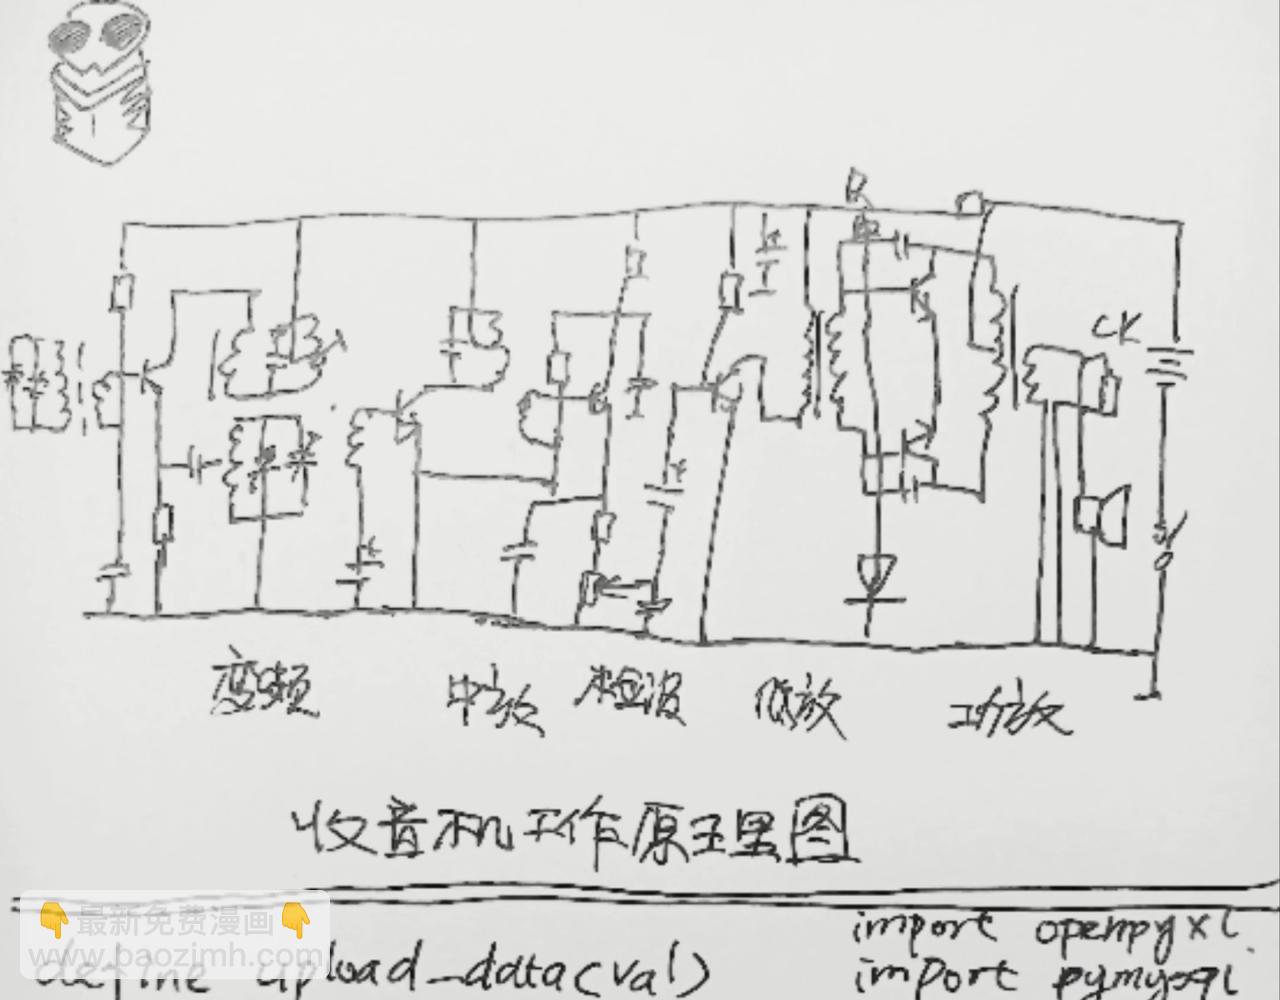 R
CK
变频 中放 检波 低放 功放
收音机工作原理图
👇最新免费漫画👇
www.baozimh.com
import openpyxl
define upload_data(val)
import pymysql